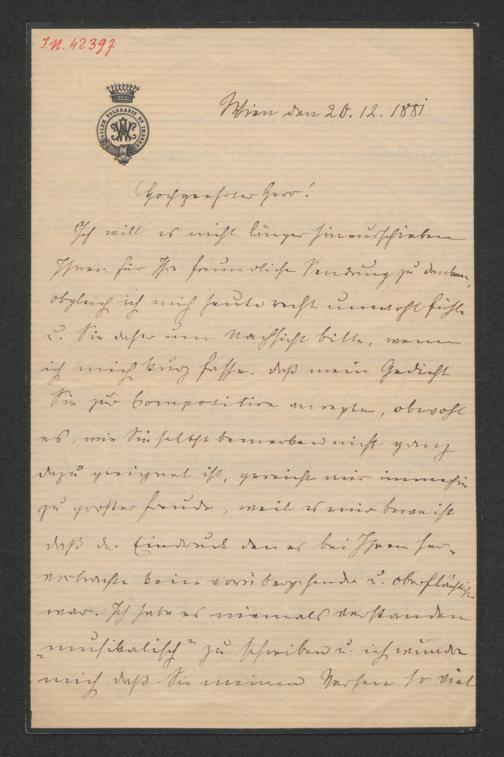 I.N. 42397
Wien den 20.12.1881
Hochgeehrter Herr!
Ich will es nicht länger hinausschieben
Ihnen für Ihre freundliche Sendung zu danken,
obgleich ich mich heute recht unwohl fühle
u. Sie daher um Nachsicht bitte, wenn
ich mich kurz fasse. Daß mein Gedicht
Sie zur Composition anregte, obwohl
es, wie Sie selbst bemerken nicht ganz
dazu geeignet ist, gereicht mir immerhin
zu großer Freude, weil es mir beweist
daß der Eindruck den es bei Ihnen her-
vorbrachte keine vorübergehender u. oberflächlicher
war. Ich habe es niemals verstanden
„musikalisch" zu schreiben u. ich wundre
mich daß Sie meinen Versen so viel